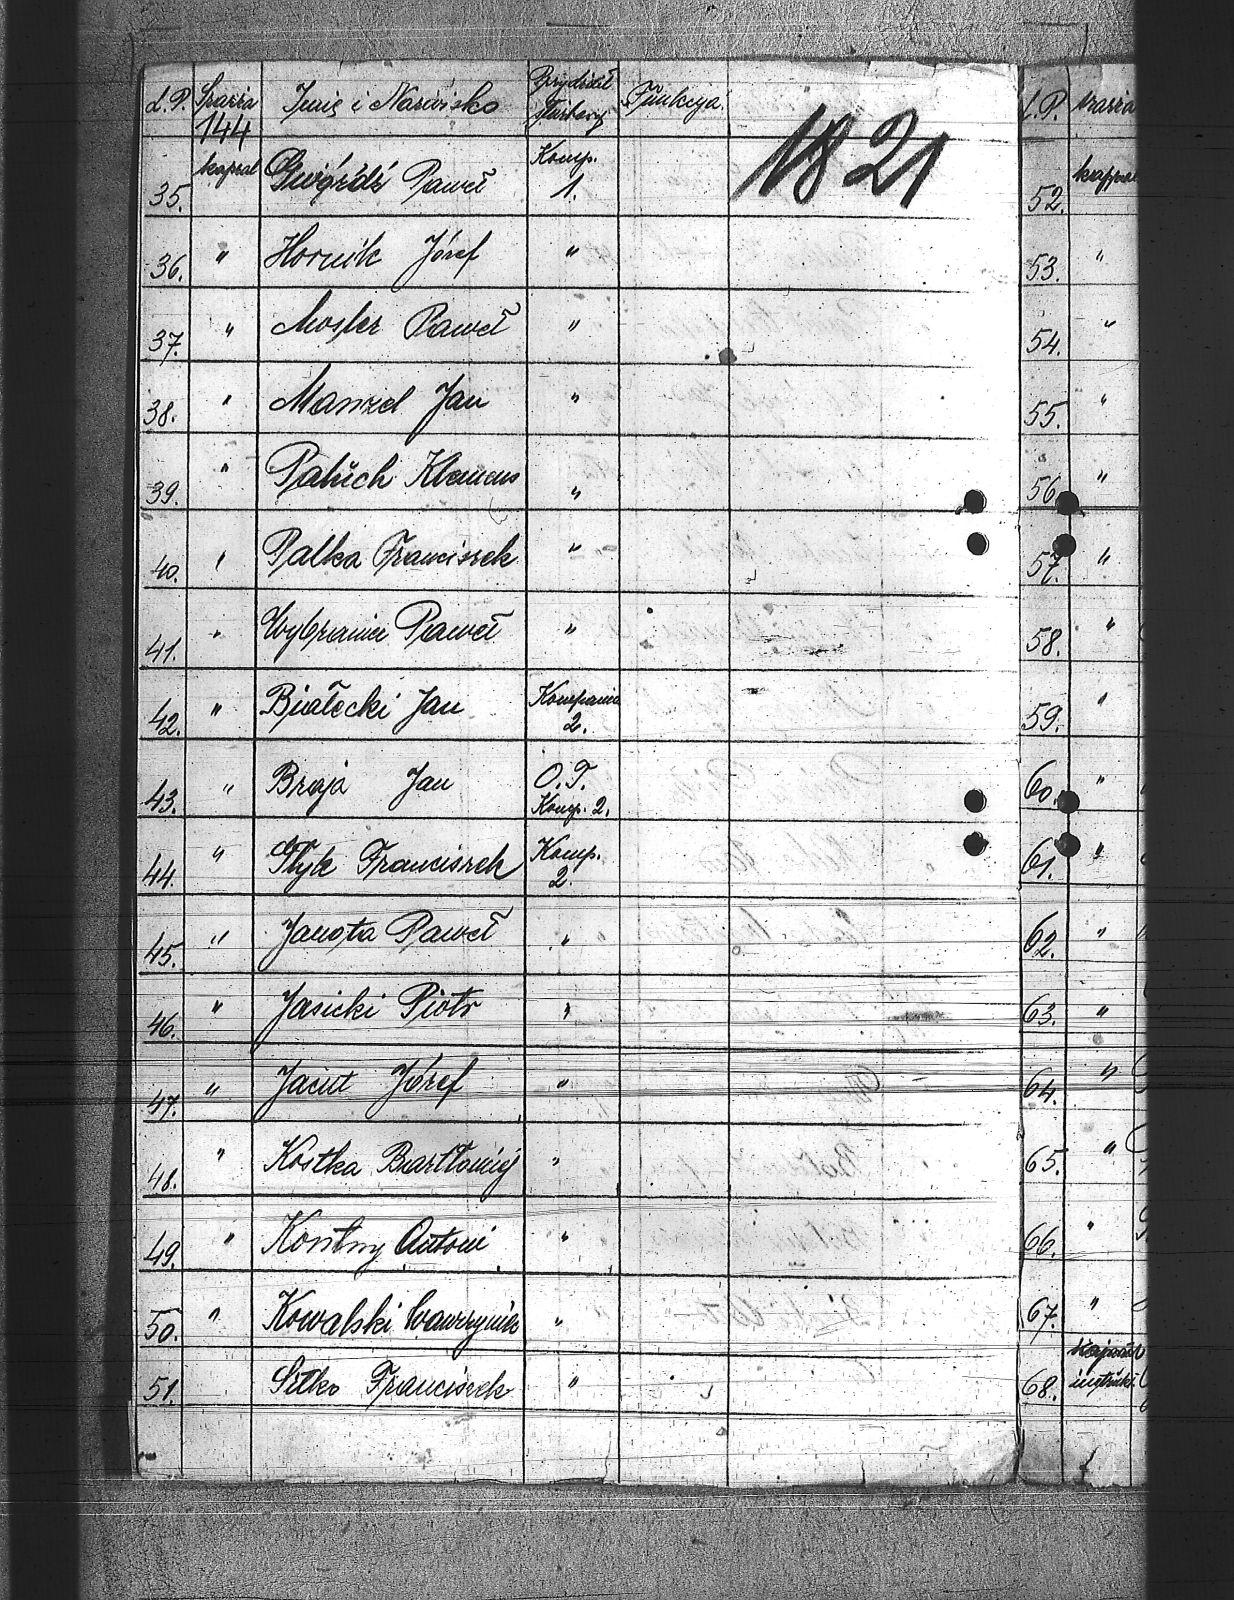 L.P. Szarża Imię i Nazwisko Przydział Funkcya.
144
1821
35. kapral Gwóźdź Paweł Komp. 1.
36. " Hornik Józef "
37. " Mosler Paweł "
38. " Manzel Jan "
39. " Paluch Klemens "
40. " Palka Franciszek "
41. " Paweł "
42. " Białecki Jan Kompania 2.
43. " Breja Jan O.T. Komp. 2.
44. " Franciszek Komp. 2.
45. " Janota Paweł "
46. " Jasicki Piotr "
47. " Józef "
48. " Kostka Bartłomiej "
49. " Kontny Antoni "
50. " Kowalski Wawrzyniec "
51. " Sitko Franciszek "
L.P. szarża
52. kapral
53. "
54. "
55. "
56. "
57. "
58. "
59. "
60. "
61. "
62. "
63. "
64. "
65. "
66. "
67. "
68. kapral